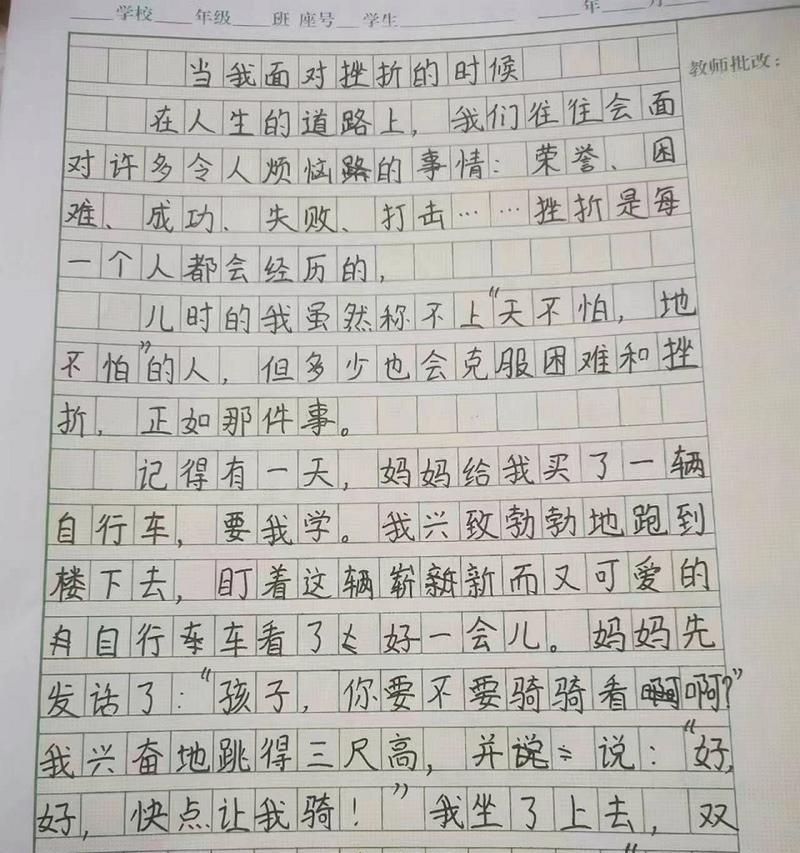 学校 年级 班 座号 学生 年 月
教师批改：
当我面对挫折的时候
在人生的道路上，我们往往会面
对许多令人烦恼的事情：荣誉、困
难、成功、失败、打击……挫折是每
一个人都会经历的，
儿时的我虽然称不上“天不怕，地
不怕”的人，但多少也会克服困难和挫
折，正如那件事。
记得有一天，妈妈给我买了一辆
自行车，要我学。我兴致勃勃地跑到
楼下去，盯着这辆崭新而又可爱的
自行车看了好一会儿。妈妈先
发话了：“孩子，你要不要骑骑看啊？”
我兴奋地跳得三尺高，并说：“好，
好，快点让我骑！”我坐了上去，双